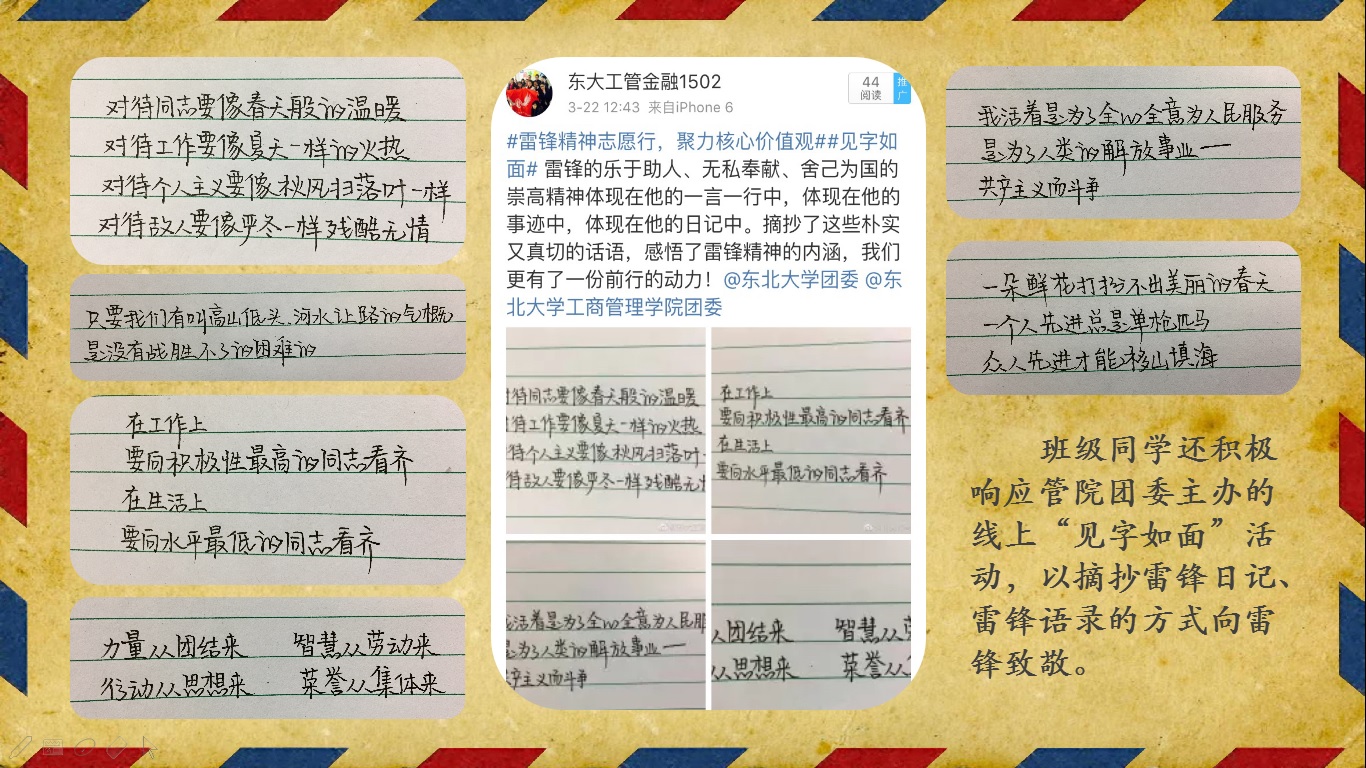 对待同志要像春天般的温暖
对待工作要像夏天一样的火热
对待个人主义要像秋风扫落叶一样
对待敌人要像严冬一样残酷无情
只要我们有叫高山低头、河水让路的气概
是没有战胜不了的困难的
在工作上
要向积极性最高的同志看齐
在生活上
要向水平最低的同志看齐
力量从团结来 智慧从劳动来
行动从思想来 荣誉从集体来
东大工管金融1502
3-22 12:43 来自iPhone 6
44
阅读
推
广
#雷锋精神志愿行，聚力核心价值观##见字如
面# 雷锋的乐于助人、无私奉献、舍己为国的
崇高精神体现在他的一言一行中，体现在他的
事迹中，体现在他的日记中。摘抄了这些朴实
又真切的话语，感悟了雷锋精神的内涵，我们
更有了一份前行的动力！@东北大学团委 @东
北大学工商管理学院团委
待同志要像春天般的温暖
待工作要像夏天一样的火热
待个人主义要像秋风扫落叶一
待敌人要像严冬一样残酷无情
在工作上
要向积极性最高的同志看齐
在生活上
要向水平最低的同志看齐
活着是为了全心全意为人民服
是为了人类的解放事业一
共产主义而斗争
从团结来 智慧从劳
从思想来 荣誉从
我活着是为了全心全意为人民服务
是为了人类的解放事业——
共产主义而斗争
一朵鲜花打扮不出美丽的春天
一个人先进总是单枪匹马
众人先进才能移山填海
班级同学还积极
响应管院团委主办的
线上“见字如面”活
动，以摘抄雷锋日记、
雷锋语录的方式向雷
锋致敬。